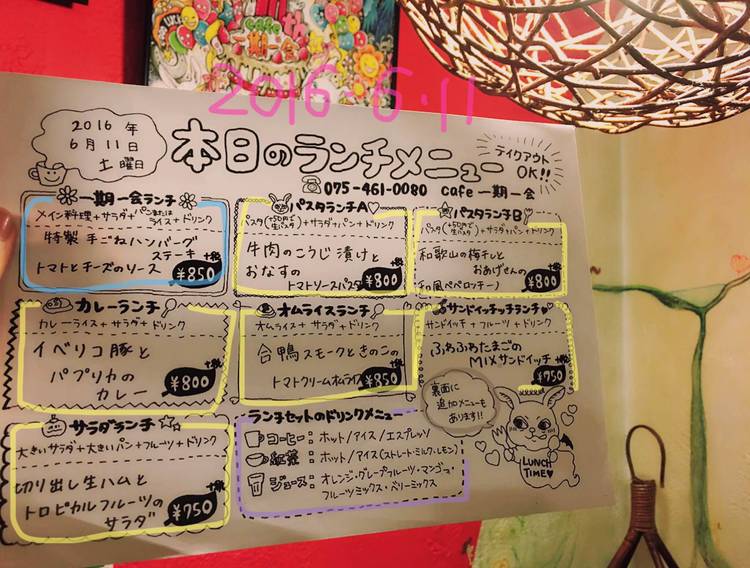 POP LUCK
cafe
一期一会
2016.6.11
2016年
6月11日
土曜日
本日のランチメニュー
テイクアウト
OK!!
☎075-461-0080 cafe 一期一会
一期一会ランチ
メイン料理+サラダ+パンまたはライス+ドリンク
特製 手ごねハンバーグ
ステーキ
トマトとチーズのソース
+税
¥850
パスタランチA♡
パスタ(+50円で生パスタ)+サラダ+パン+ドリンク
牛肉のこうじ漬けと
おなすの
トマトソースパスタ
+税
¥800
パスタランチB
パスタ(+50円で生パスタ)+サラダ+パン+ドリンク
和歌山の梅干しと
おあげさんの
和風ペペロンチーノ
+税
¥800
カレーランチ
カレーライス+サラダ+ドリンク
イベリコ豚と
パプリカの
カレー
+税
¥800
オムライスランチ
オムライス+サラダ+ドリンク
合鴨スモークときのこの
トマトクリームオムライス
+税
¥850
サンドイッチランチ
サンドイッチ+フルーツ+ドリンク
ふわふわたまごの
MIXサンドイッチ
+税
¥750
サラダランチ
大きいサラダ+大きいパン+フルーツ+ドリンク
切り出し生ハムと
トロピカルフルーツの
サラダ
+税
¥750
ランチセットのドリンクメニュー
コーヒー:ホット/アイス/エスプレッソ
紅茶:ホット/アイス(ストレート・ミルク・レモン)
ジュース:オレンジ・グレープフルーツ・マンゴー・
フルーツミックス・ベリーミックス
裏面に
追加メニューも
あります!!
LUNCH
TIME♡